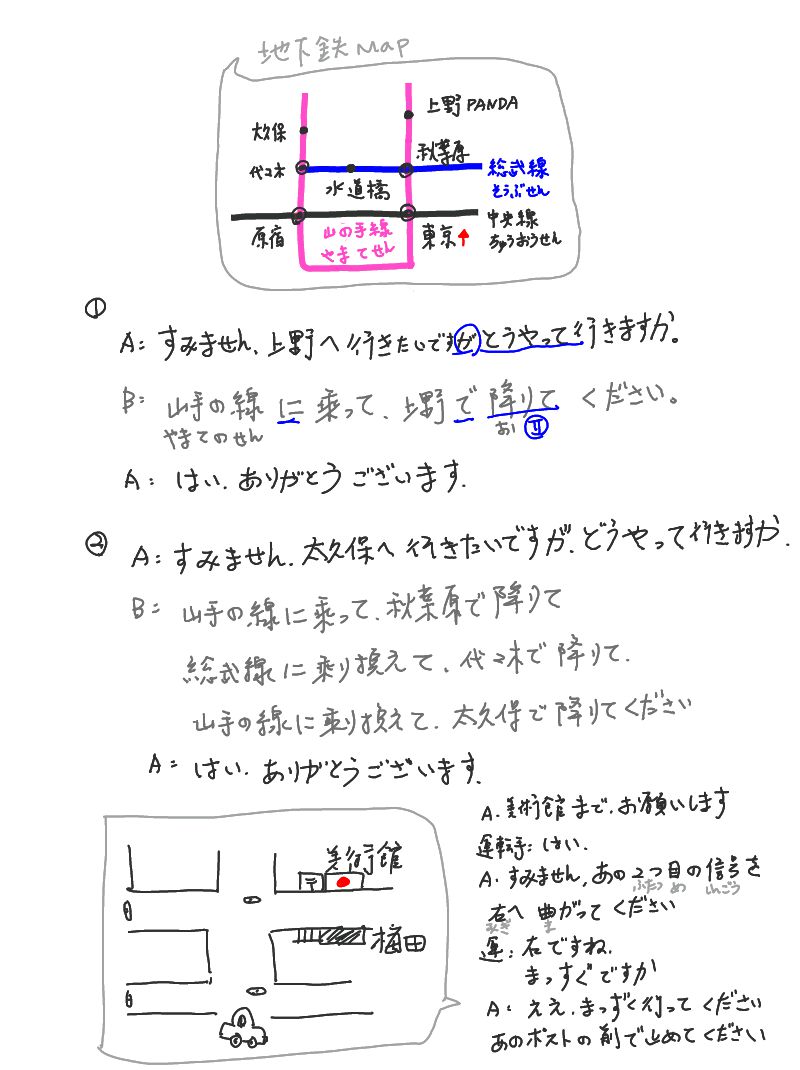 地下鉄 Map
上野 PANDA
大久保
秋葉原
代々木
総武線
そうぶせん
水道橋
中央線
ちゅうおうせん
原宿
山の手線
やまてせん
東京↑
①
A: すみません、上野へ行きたいですがとうやって行きますか。
B: 山手の線に乗って、上野で降りてください。
やまてのせん
お
II
A: はい、ありがとうございます.
②
A: すみません、太久保へ行きたいですが、どうやって行きますか.
B: 山手の線に乗って、秋葉原で降りて
総武線に乗り換えて、代々木で降りて.
山手の線に乗り換えて、太久保で降りてください
A: はい、ありがとうございます.
美術館
〒
梅田
A. 美術館まで、お願いします
運転手: はい.
A. すみません, あの2つ目の信号を
ふたつ め しんごう
右へ曲がってください
みぎ ま
運: 右ですね.
まっすぐですか
A: ええ、まっすぐ行ってください
あのポストの前で止めてください